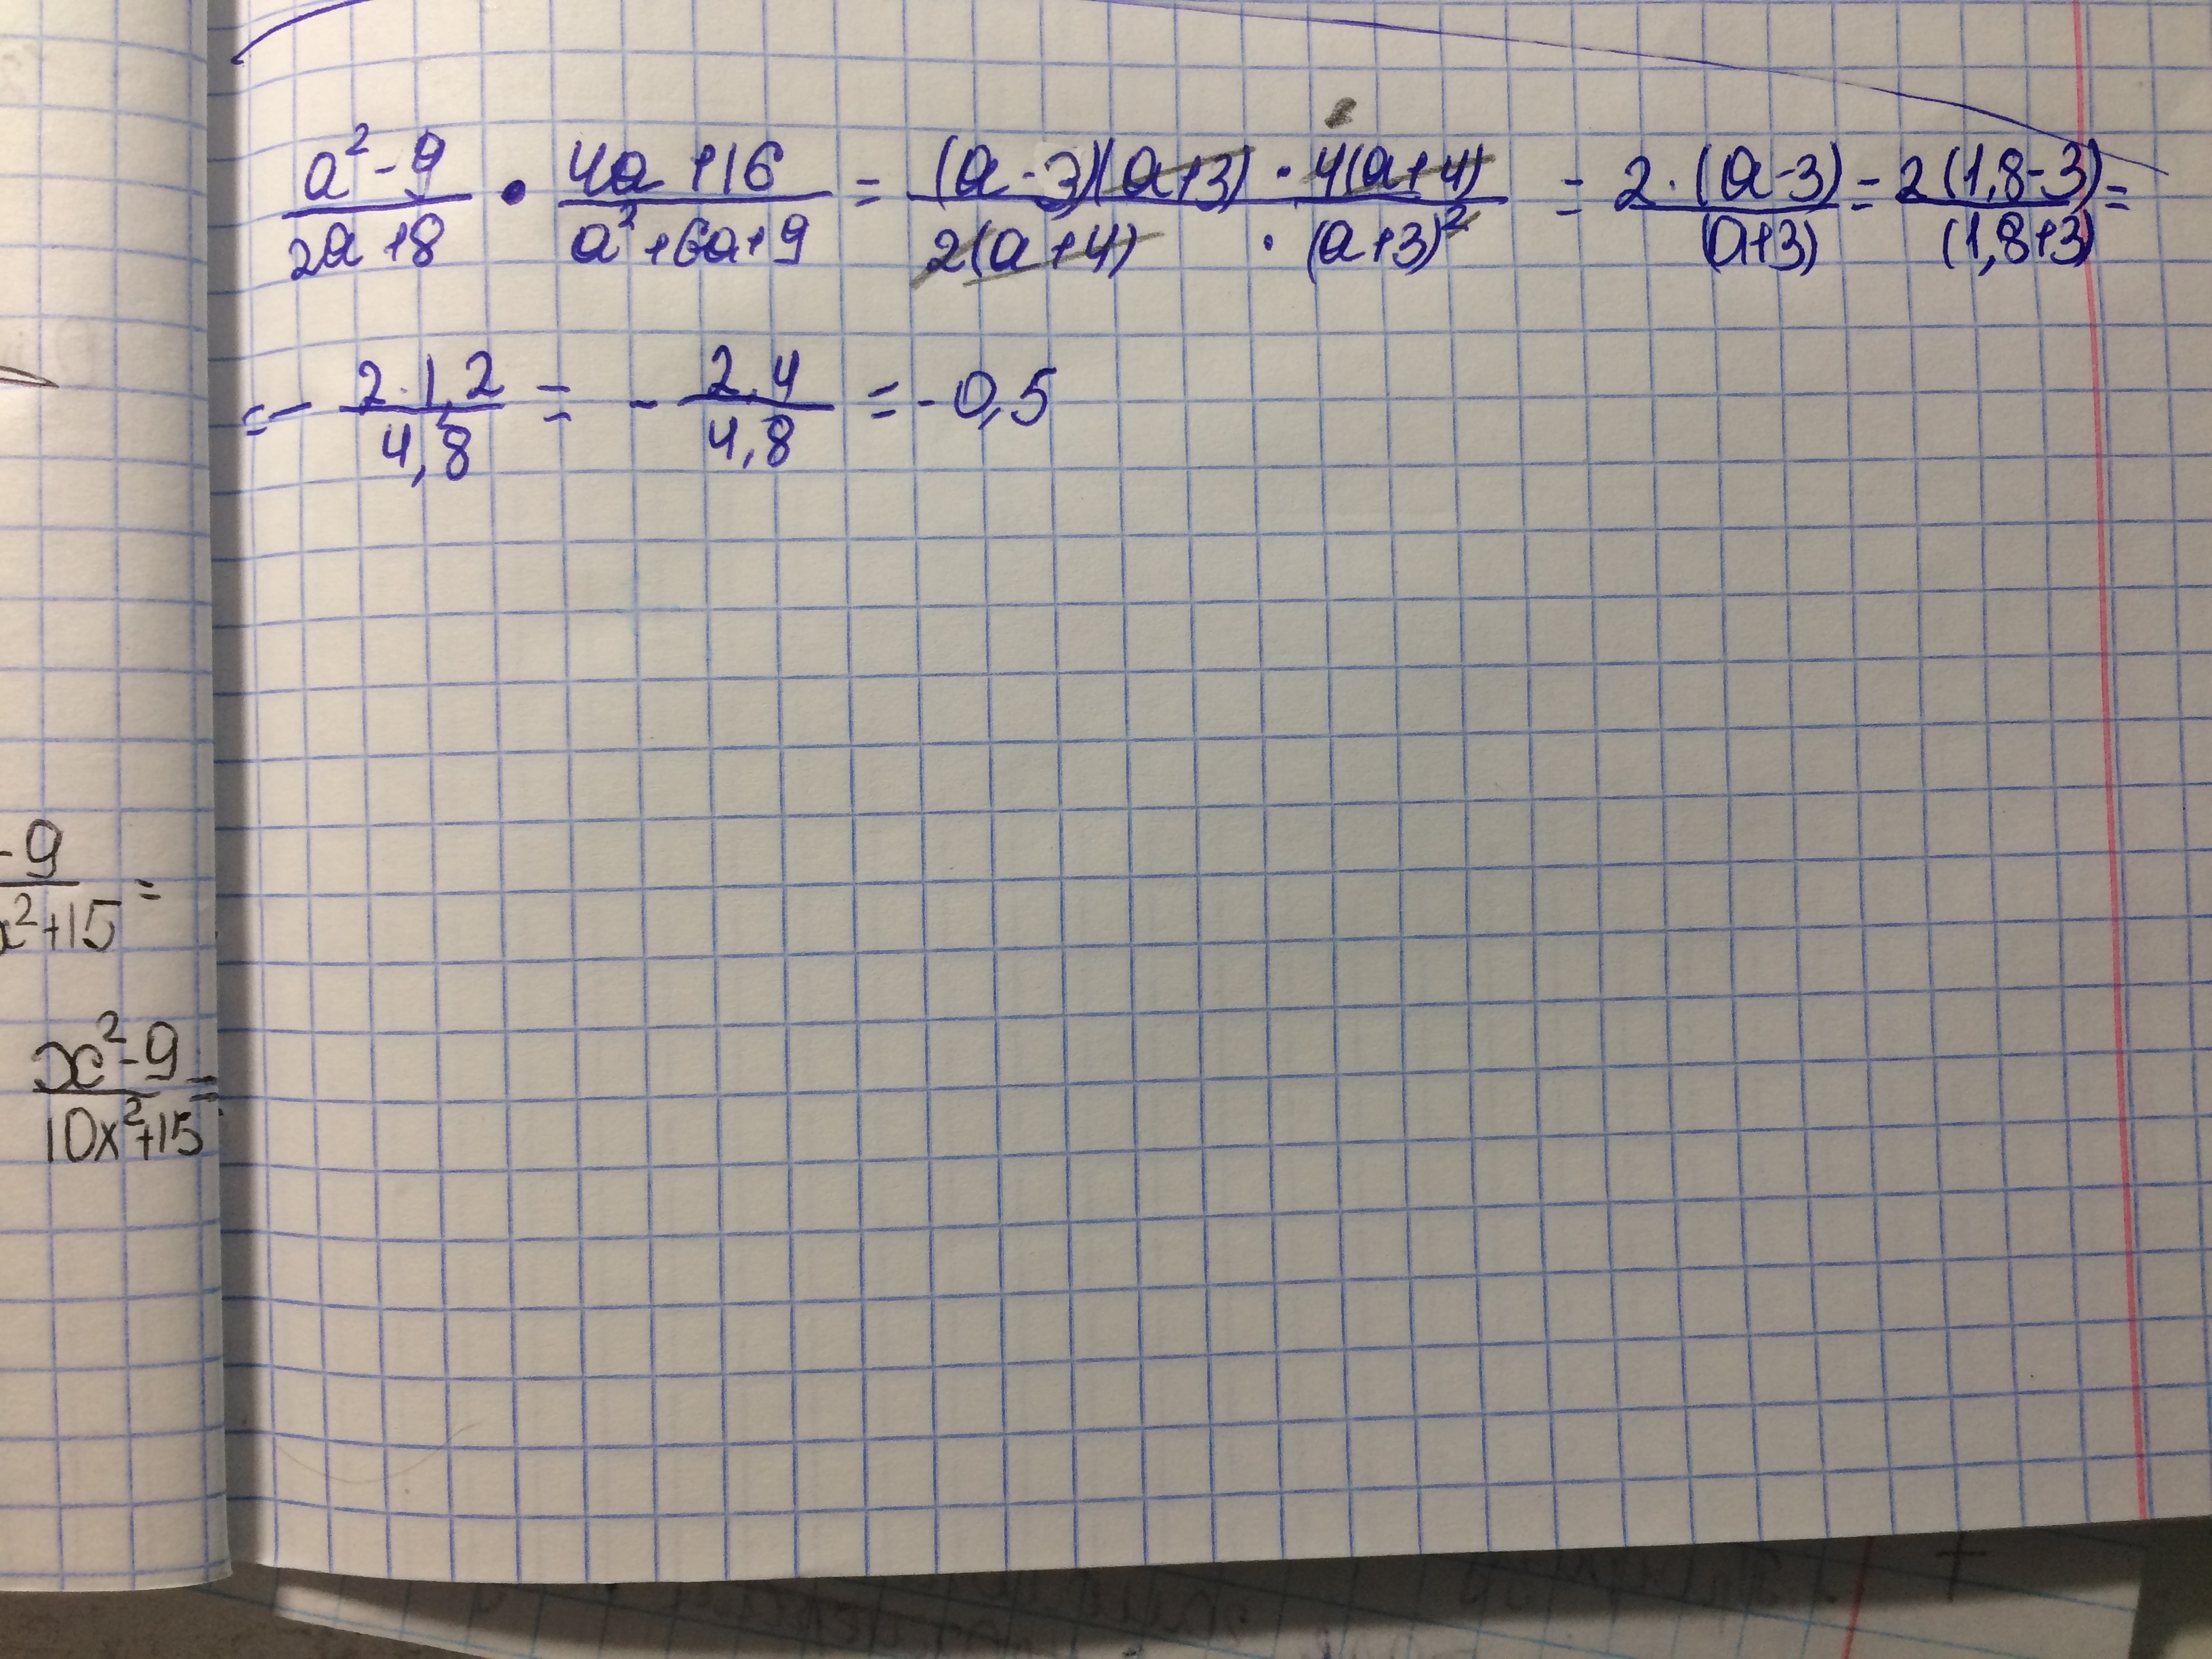 a² - 9 / 2a + 8 • 4a + 16 / a² + 6a + 9 = (a - 3)(a + 3) · 4(a + 4) / 2(a + 4) · (a + 3)² = 2 · (a - 3) / (a + 3) = 2(1,8 - 3) / (1,8 + 3) =
= - 2 · 1,2 / 4,8 = - 2,4 / 4,8 = - 0,5
- 9 / x² + 15 =
x² - 9 / 10x² + 15 =